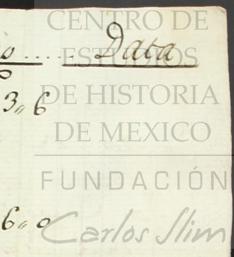 CENTRO DE
o ..... Data
ESTUDIOS
3,, 6
DE HISTORIA
DE MEXICO
FUNDACIÓN
6,, 0
Carlos Slim